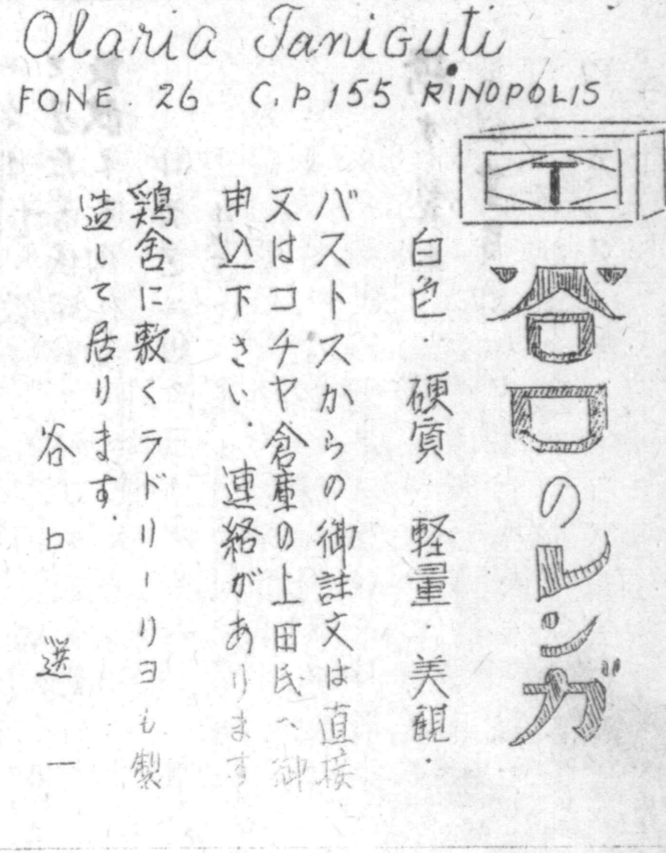 Olaria Taniguti
FONE. 26 C.P 155 RINOPOLIS
T
谷口のレンガ
白色・硬質 軽量・美観・
バストスからの御註文は直接
又はコチヤ倉庫の上田氏へ御
申込下さい・連絡があります
鶏舎に敷くラドリーリヨも製
造して居ります.
谷口選一